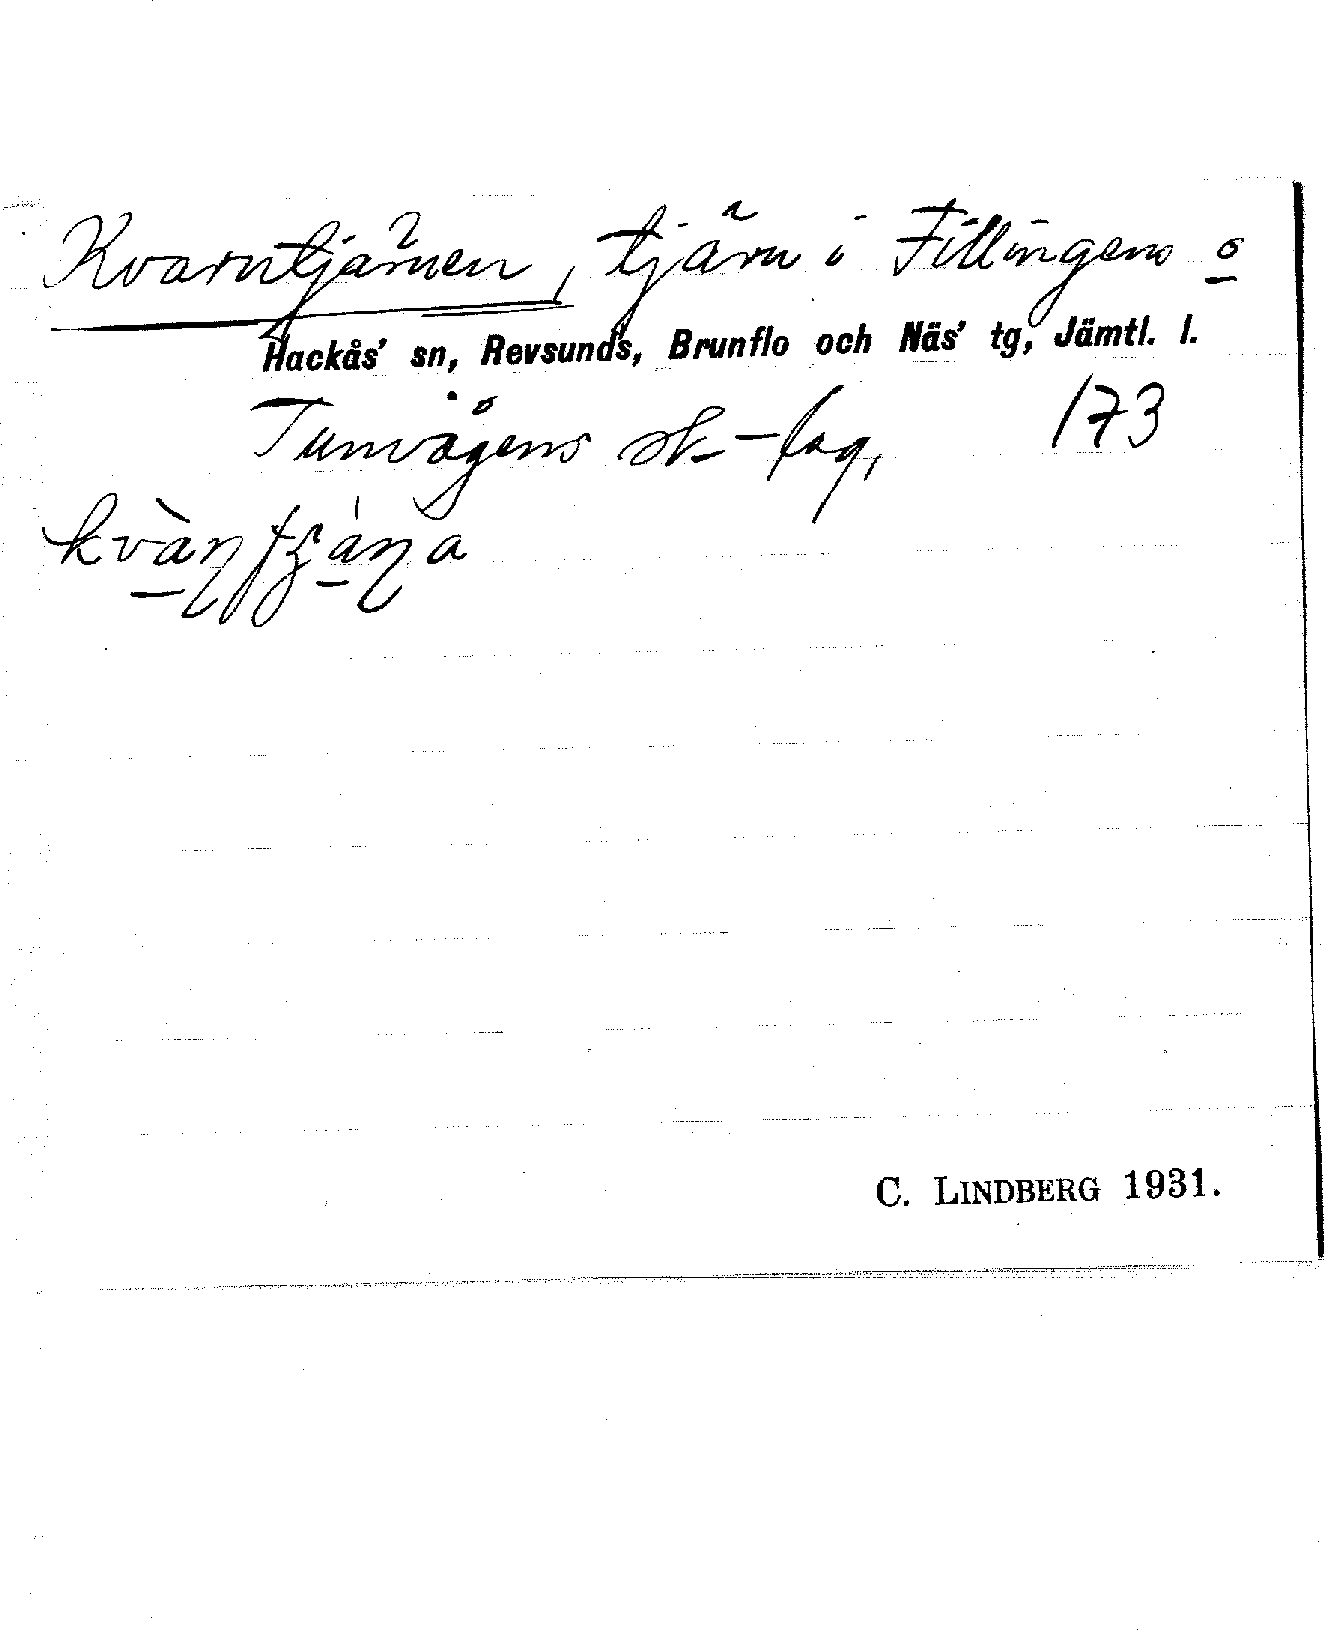 Kvarntjärnen, tjärn i Fillingens o
Hackås' sn, Revsunds, Brunflo och Näs' tg, Jämtl. l.
Tunvågens sk-lag, 173
C. LINDBERG 1931.